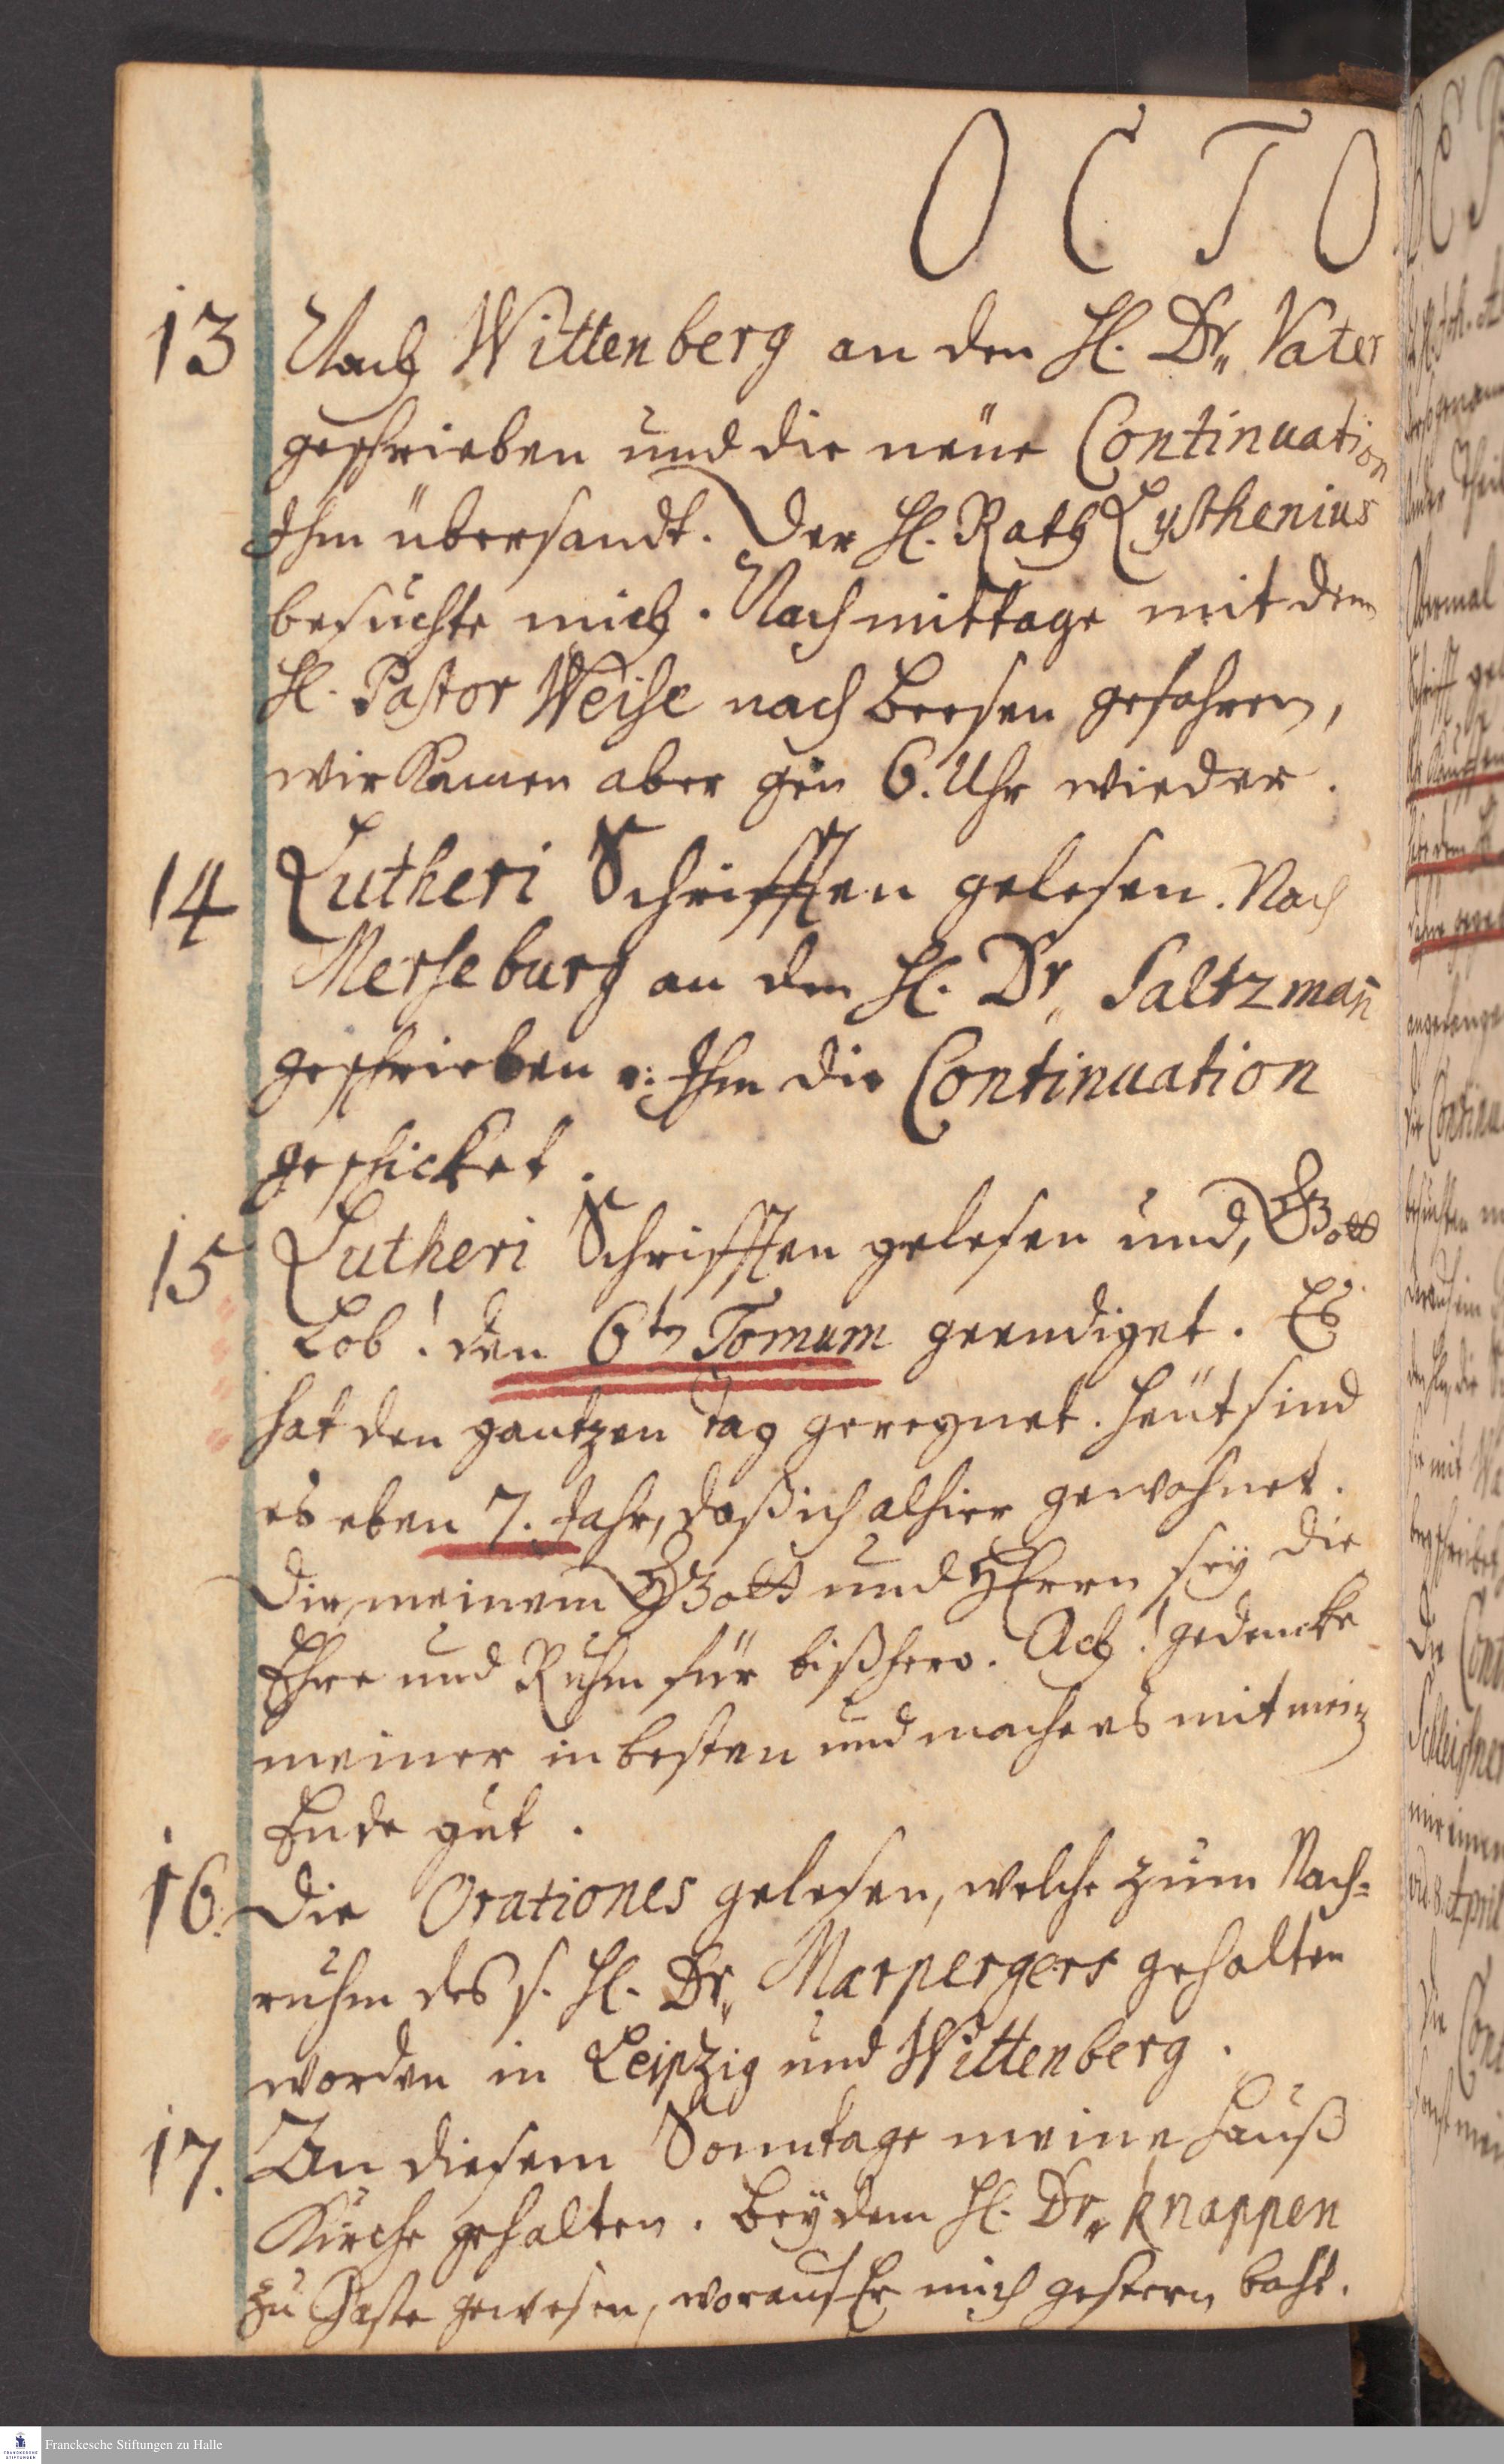 OCTO
13 Nach Wittenberg an den H. Dr. Vater
geschrieben und die neue Continuation
Ihm übersandt. Der H. Rath Lysthenius
besuchte mich. Nachmittage mit dem
H. Pastor Weise nach Beesen gefahren,
wir kamen aber gen 6. Uhr wieder.
14 Lutheri Schrifften gelesen. Nach
Merseburg an den H. Dr. Saltzman̄
geschrieben u: Ihm die Continuation
geschicket.
15 Lutheri Schrifften gelesen und, Gott
Lob! den 6tn Tomum geendiget. Es
hat den gantzen Tag geregnet. Heüt sind
es eben 7. Jahr, daß ich alhier gewohnet.
Dir, meinem Gott und HErrn sey die
Ehre und Ruhm für bißhero. Ach! gedencke
meiner in besten und mache es mit mein
Ende gut.
16. Die Orationes gelesen, welche zum Nach=
ruhm des s. H. Dr. Marpergers gehalten
worden in Leipzig und Wittenberg.
17. An diesem Sonntage meine Hauß
Kirche gehalten. Bey dem H. Dr. Knappen
zu Gaste gewesen, worauf Er mich gestern baht.
Franckesche Stiftungen zu Halle